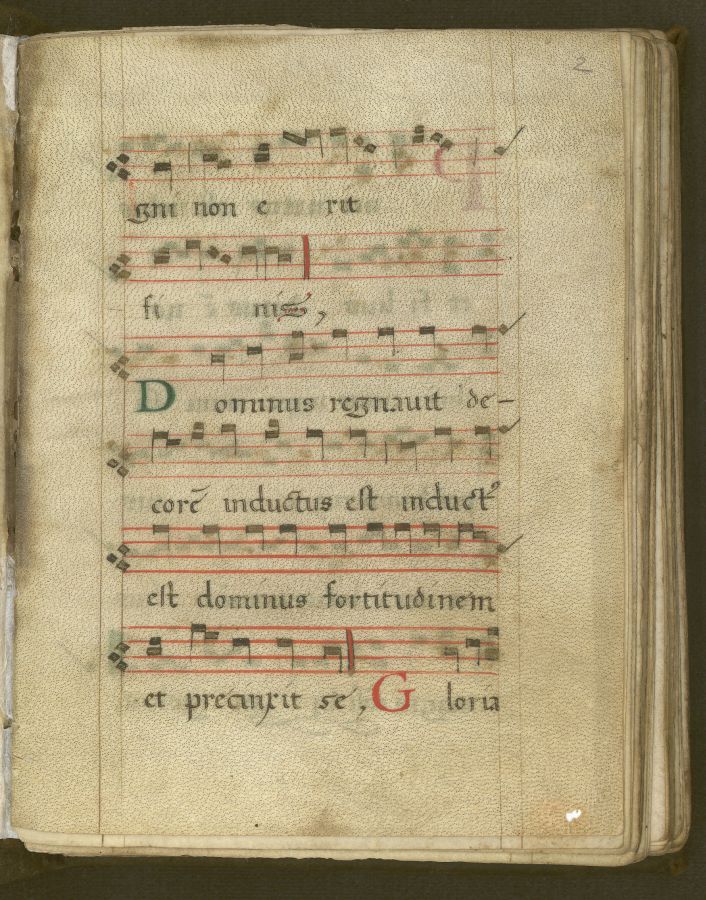 2
gni non e rit
fi nis,
Dominus regnavit de-
corē inductus est induct⁹
est dominus fortitudinem
et precinxit se, Gloria